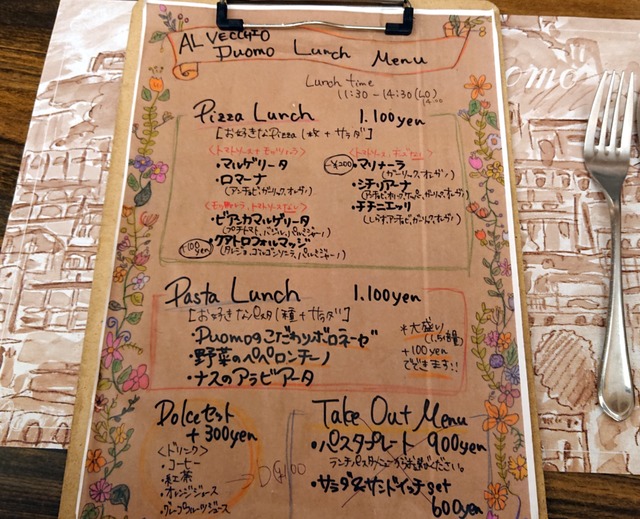 AL VECCHIO
Duomo Lunch Menu
Lunch time
11:30 - 14:30 (LO)
14:00
Pizza Lunch 1.100yen
[お好きなPizza 1枚 + サラダ]
<トマトソース+モッツァレラ>
・マルゲリータ
・ロマーナ
(アンチョビ,ガーリック,オレガノ)
<モッツァレラ,トマトソースなし>
・ビアンカマルゲリータ
(プチトマト,バジル,パルミジャーノ)
+100yen ・クアトロフォルマッジ
(タレジョ,ゴルゴンゾーラ,パルミジャーノ)
<トマトソース,チーズなし>
-¥200 ・マリナーラ
(ガーリック,オレガノ)
・シチリアーナ
(アンチョビ,ケッパー,ガーリック,オレガノ)
・チチニエッリ
(しらす,アンチョビ,ガーリック,オレガノ)
Pasta Lunch 1.100yen
[お好きなパスタ1種+サラダ]
・Duomoのこだわりボロネーゼ
・野菜のペペロンチーノ
・ナスのアラビアータ
*大盛り
+100yen
でできます!!
Dolceセット
+300yen
<ドリンク>
・コーヒー
・紅茶
・オレンジジュース
・グレープフルーツジュース
Take Out Menu
・パスタプレート 900yen
ランチパスタメニューからお選びください。
・サラダ&サンドイッチset
600yen
omo